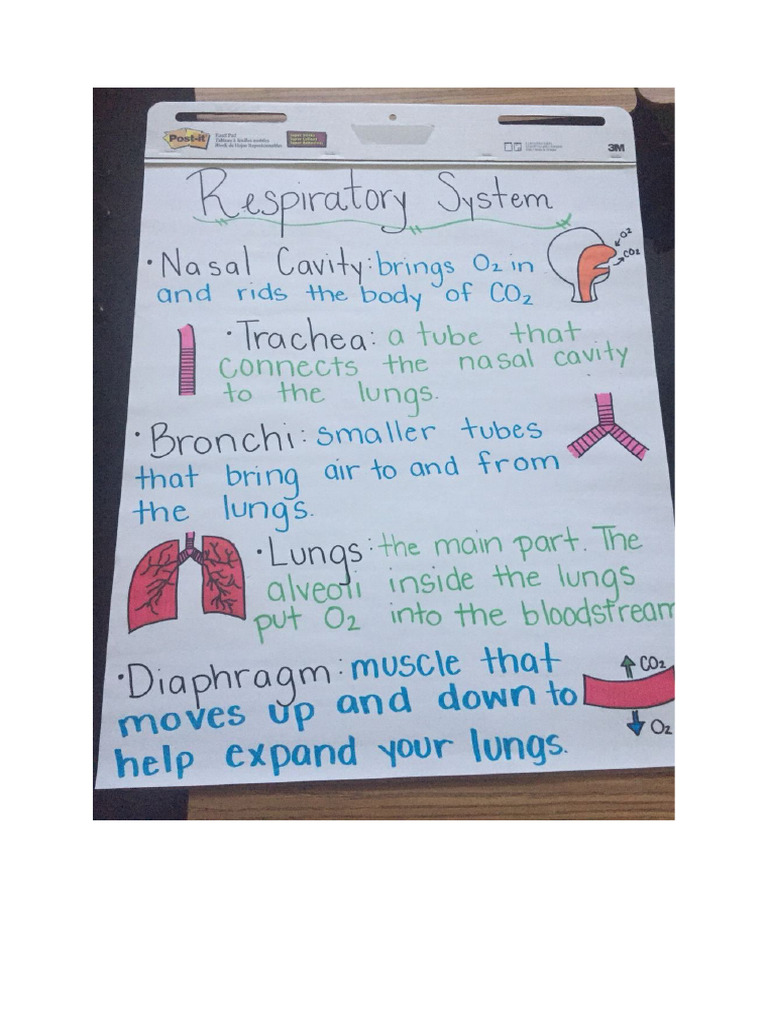 Post-it
3M
Respiratory System
• Nasal Cavity: brings O2 in
and rids the body of CO2
O2
CO2
• Trachea: a tube that
connects the nasal cavity
to the lungs.
• Bronchi: smaller tubes
that bring air to and from
the lungs.
• Lungs: the main part. The
alveoli inside the lungs
put O2 into the bloodstream
• Diaphragm: muscle that
moves up and down to
help expand your lungs.
CO2
O2